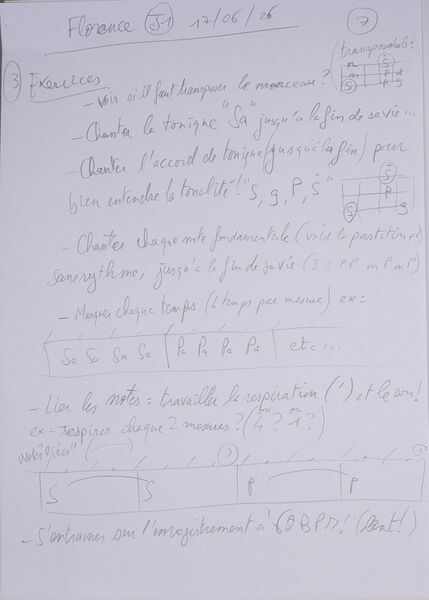 Florence J1 17/06/26
7
3 Exercices
(transposable)
- Voir si il faut transposer le morceau ?
- Chanter la tonique "Sa" jusqu'à la fin de sa vie...
- Chanter l'accord de tonique (jusqu'à la fin) pour
bien entendre la tonalité ! "S, g, P, Ṡ"
S P S g
- Chanter chaque note fondamentale (voir la partition)
sans rythme, jusqu'à la fin de sa vie (S S P P m P m P)
- Marquer chaque temps (4 temps par mesure) ex =
Sa Sa Sa Sa | Pa Pa Pa Pa | etc...
- Lier les notes = travailler la respiration (') et le son !
ex = respirer chaque 2 mesures ? (4 ? ou 1 ?)
ou
notes "liées"
S S P P
- S'entraîner sur l'enregistrement à 60 BPM ! (Lent !)